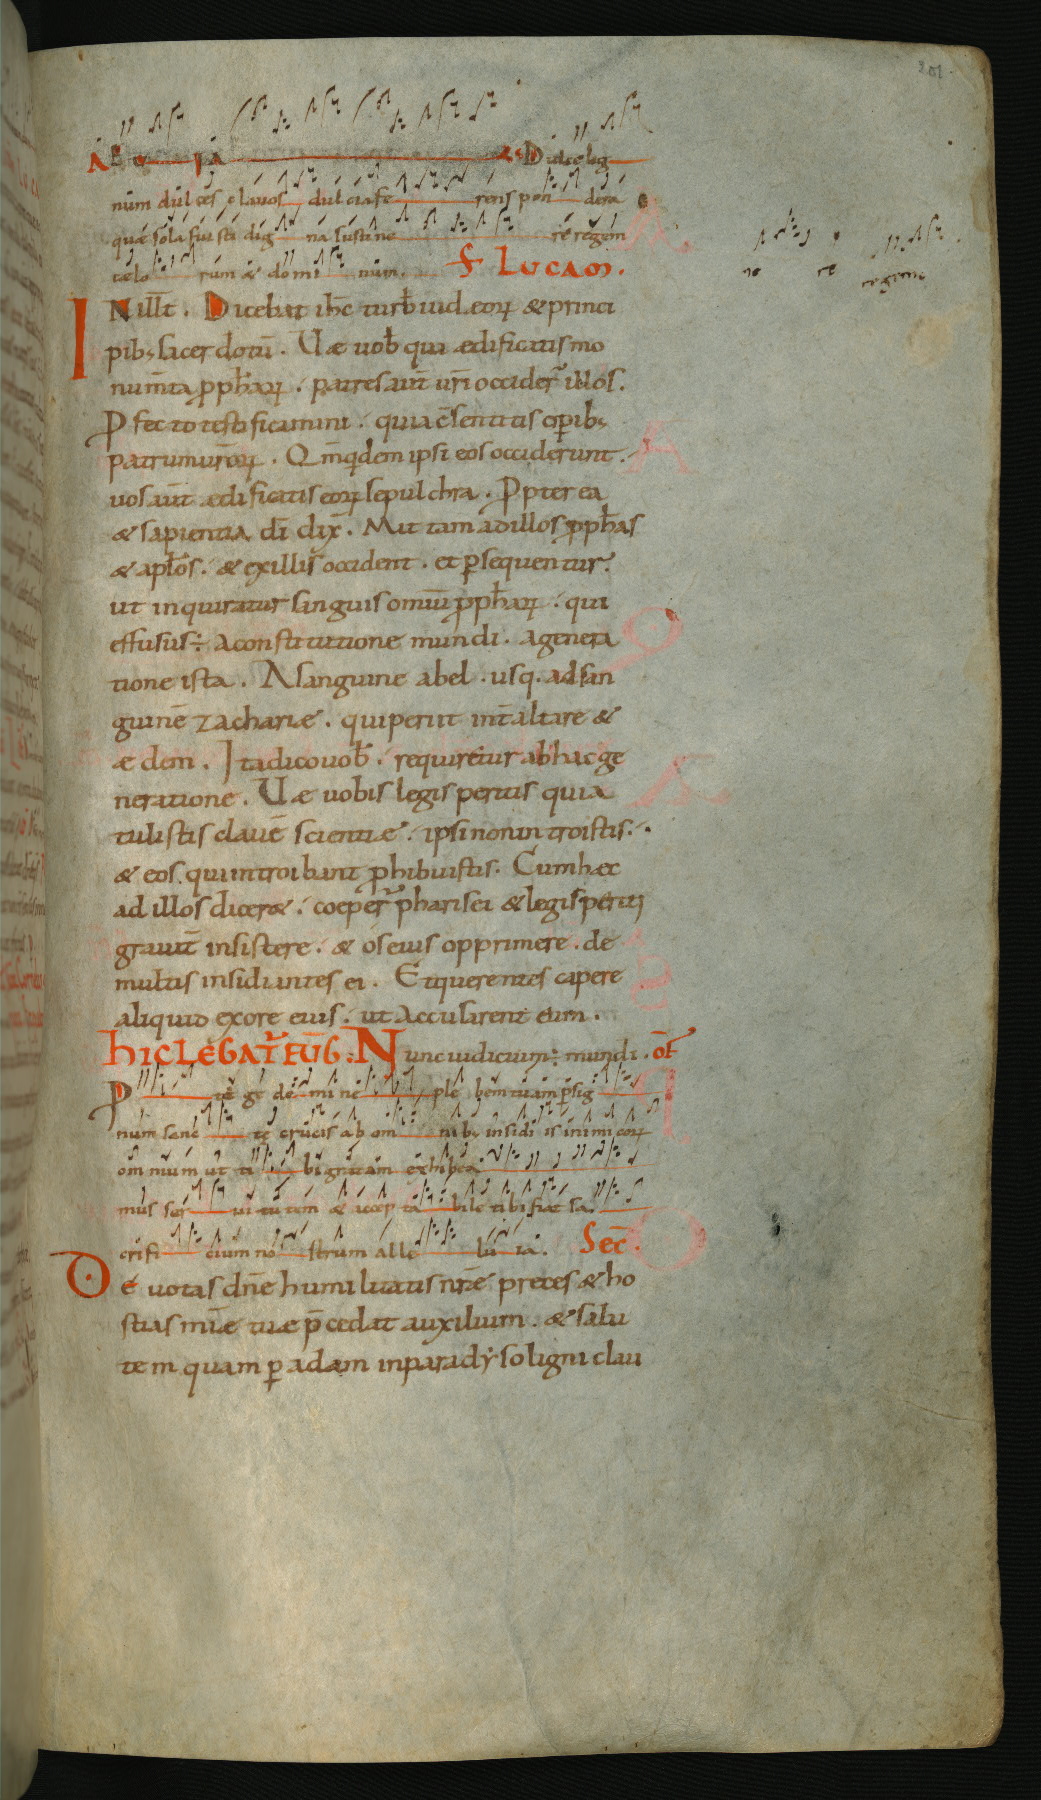 201
AEVIA Dulce lig
num dulces clavos dulcia fe rens pon dera
quae sola fuisti dig na sustine re regem
caelo rum & domi num. S LUCAM.
no re regem
IN illt. Dicebat ihc turb iudeorꝝ & princi
pibꝫ sacerdotū. Uae uob qui aedificatis mo
numta ꝓphꝝ. patres aūt uri occider illos.
Pfecto testificamini. quia csentitis opibꝫ
patrum urorꝝ. Qmqdem ipsi eos occiderunt.
uos aut aedificatis eorꝝ sepulchra. Ppterea
& sapientia dī dix. Mittam ad illos ꝓphas
& aplos. & ex illis occident. et ꝑsequentur.
ut inquiratur sanguis omiū ꝓphꝝ. qui
effusus ÷ a constitutione mundi. a genera
tione ista. A sanguine abel. usq. ad san
guinē zachariae. qui periit int altare &
aedem. Ita dico uob. requiretur ab hac ge
neratione. Uae uobis legis peritis quia
tulistis clauē scientiae. ipsi non introistis.
& eos qui introibant ꝓhibuistis. Cum haec
ad illos diceret. coeper pharisei & legis periti
grauit insistere. & os eius opprimere. de
multis insidiantes ei. Et querentes capere
aliquid ex ore eius. ut accusarent eum.
HIC LEGATUR EUG: Nunc iudicium ÷ mundi. OF
P te ge do mi ne ple bem tuam ꝑ sig
num sanc te crucis ab om nibꝫ insidi is inimicorꝝ
omnium ut ti bi gratam exhibea
mus ser ui tutem & accep ta bile tibi fiat sa
crifi cium no strum alle lu ia. Sec.
Deuotas dne humilitatis nrē preces & ho
stias miae tuae p̄cedat auxilium. & salu
tem quam ꝑ adam in paradyso ligni clau